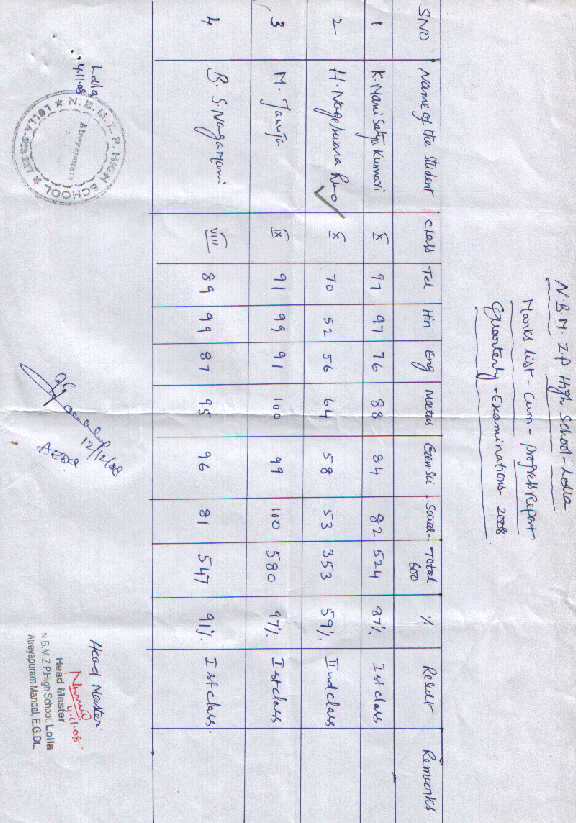 N.B.M. Z.P High School - Lolla
Marks list - Cum - progress Report
Quarterly - Examinations - 2008
S.NO Name of the student class Tel Hin Eng Maths Gen Sci Social Total 600 % Result Remarks
1 K. Mani Satya Kumari X 97 97 76 88 84 82 524 87% Ist class
2 H. Nageswara Rao X 70 52 56 64 58 53 353 59% IInd class
3 M. IX 91 99 91 100 99 100 580 97% Ist class
4 B. S. Nagamani VIII 89 99 87 95 96 81 547 91% Ist class
Lolla
4.11.08
N.B.M.Z.P. HIGH SCHOOL
LOLLA
12/12/08
Head Master
4.11.08
Head Master
N.B.V.Z.P.High School, Lolla
Alveyapuram Mandal, E.G.Dt.